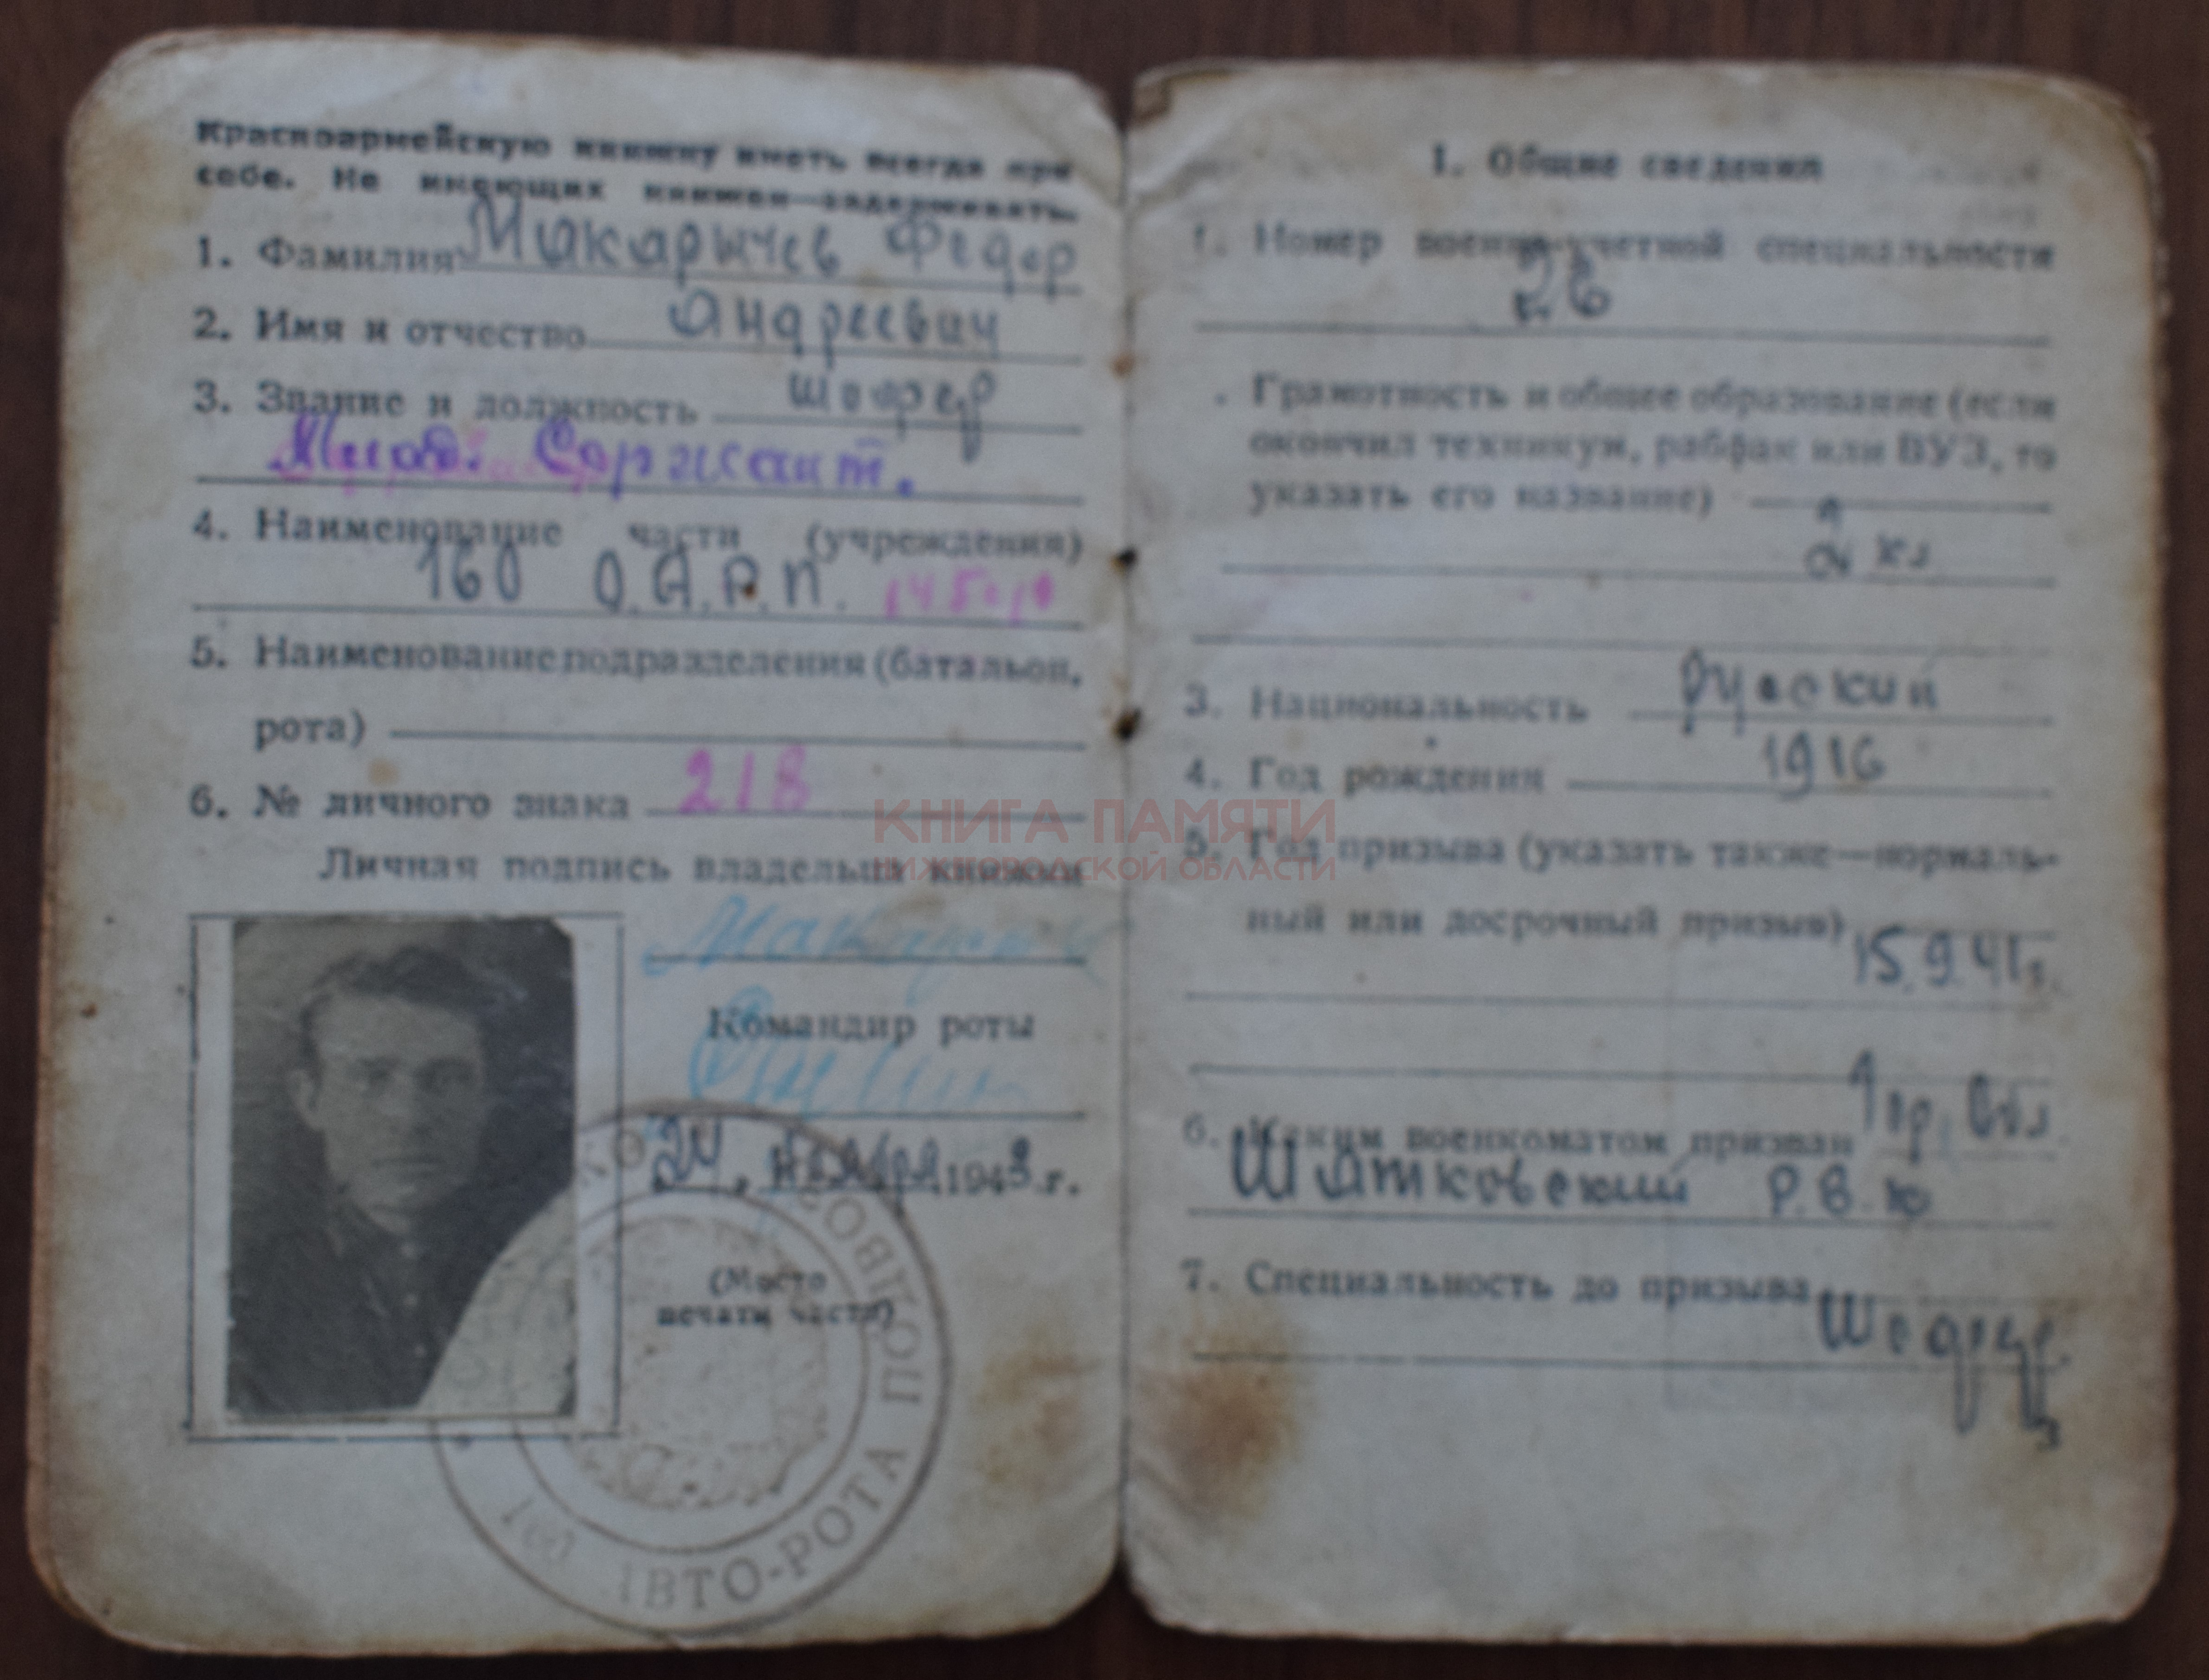 Красноармейскую книжку иметь всегда при
себе. Не имеющих книжек—задерживать.
1. Фамилия Макарычев Федор
2. Имя и отчество Андреевич
3. Звание и должность шофер
Млад. Сержант.
4. Наименование части (учреждения)
160 О.А.Р.П.
5. Наименование подразделения (батальон,
рота)
6. № личного знака 218
Личная подпись владельца книжки
Командир роты
24, 1943 г.
(Место
печати части)
160 АВТО-РОТА ПОДВОЗ
I. Общие сведения
1. Номер военно-учетной специальности
26
Грамотность и общее образование (если
окончил техникум, рабфак или ВУЗ, то
указать его название)
2 кл
3. Национальность русский
4. Год рождения 1916
5. Год призыва (указать также—нормаль-
ный или досрочный призыв) 15.9.41г.
6. Каким военкоматом призван
Шатковский Р.В.К
7. Специальность до призыва
КНИГА ПАМЯТИ
НИЖЕГОРОДСКОЙ ОБЛАСТИ